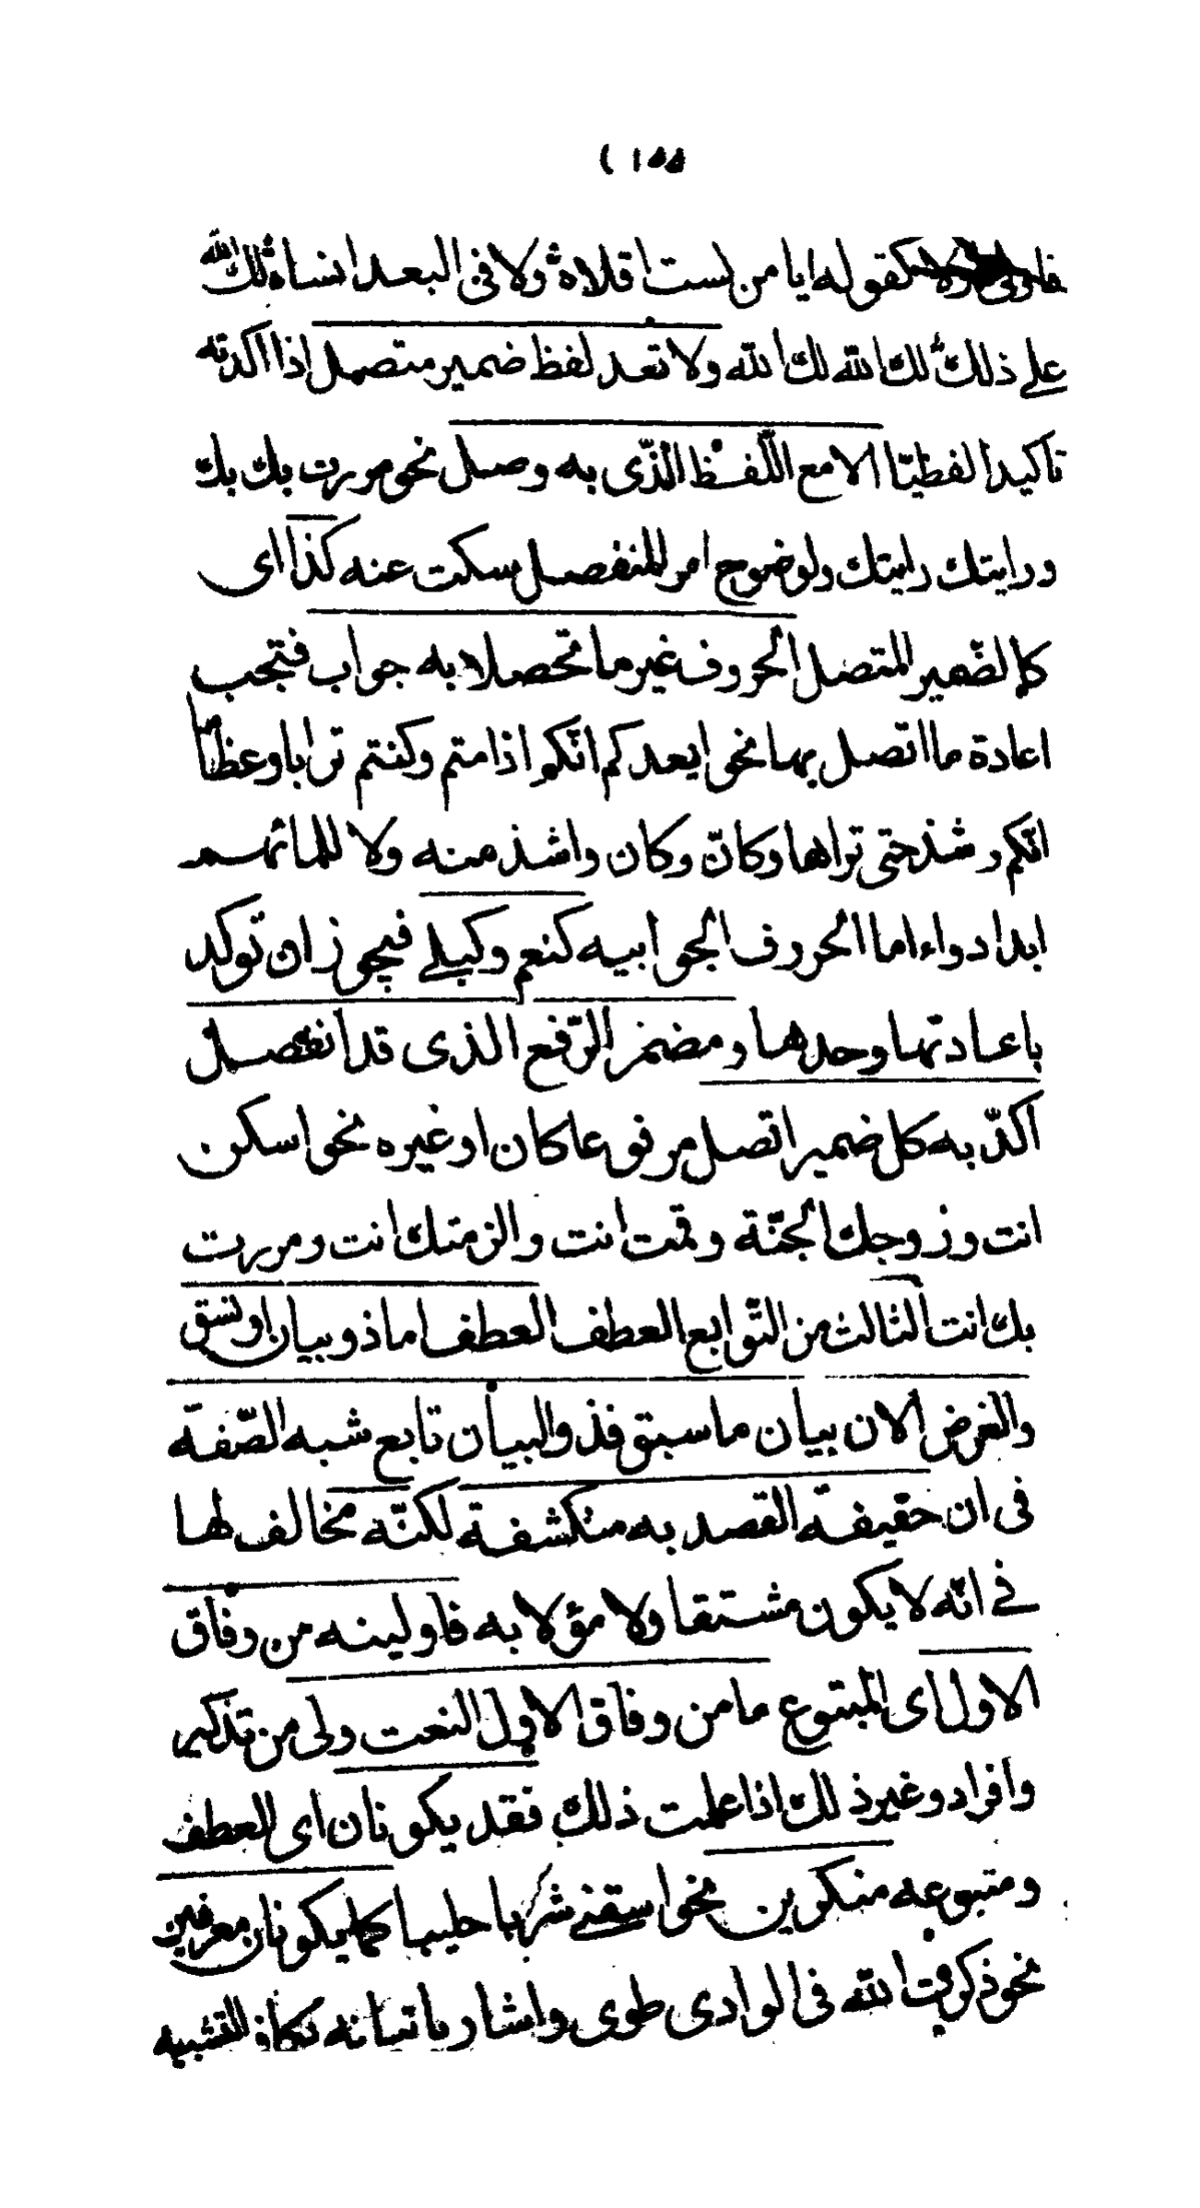 ( ١٥٥
فاولى اولا كقوله ايا من لست اقلاه ولا فى البعد انساه لك الله
على ذلك لك الله لك الله ولا تعد لفظ ضمير متصل اذا اكدته
تاكيدا لفظيّا الا مع اللّفظ الذّى به وصل نحو مررت بك بك
ورايتك رايتك ولوضوح امر المنفصل سكت عنه كذا اى
كالضّمير المتصل الحروف غير ما تحصلا به جواب فتجب
اعادة ما اتصل بها نحو ايعدكم انّكم اذا متم وكنتم ترابا وعظاما
انّكم وشذ حتى تراها وكانّ وكان واشذ منه ولا للما بهم
ابدا دواء اما الحروف الجوابيه كنعم وكبلى فيجوز ان توكد
باعادتها وحدها ومضمر الرّفع الذى قد انفصل
اكّد به كل ضمير اتصل مرفوعا كان او غيره نحو اسكن
انت وزوجك الجنّة وقمت انت والزمتك انت ومررت
بك انت الثالث من التّوابع العطف العطف اما ذو بيان او نسق
والغرض الان بيان ما سبق فذو البيان تابع شبه الصّفة
فى ان حقيقة القصد به منكشفة لكنّه مخالف لها
فى انّه لا يكون مشتقا ولا مؤلا به فاولينه من وفاق
الاول اى المبتوع ما من وفاق الاول النعت ولى من تذكير
وافراد وغير ذلك اذا علمت ذلك فقد يكونان اى العطف
ومتبوعه منكرين نحو اسقنى شربا حليبا كما يكونان معرفين
نحو ذكرت الله فى الوادى طوى واشار باتيانه بكاف التشبيه